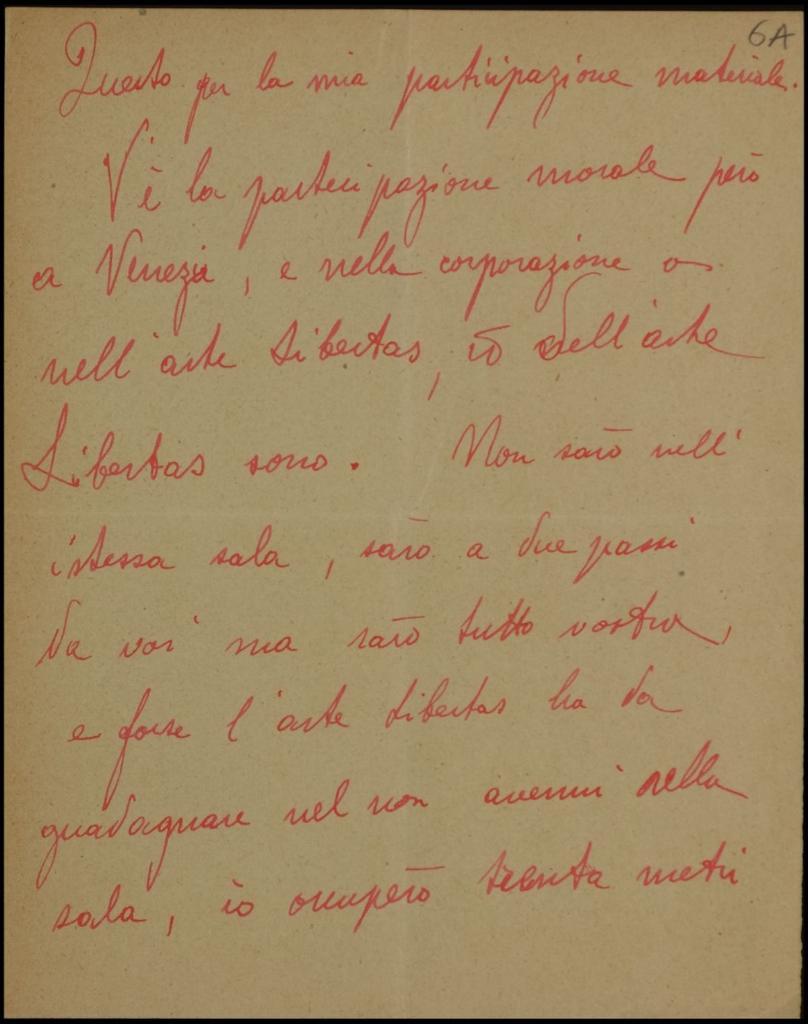 6A
Questo per la mia participazione materiale.
V'è la partecipazione morale però
a Venezia, e nella corporazione o
nell'arte Libertas, io dell'arte
Libertas sono. Non sarò nell'
istessa sala, sarò a due passi
da voi ma sarò tutto vostro,
e forse l'arte Libertas ha da
guadagnare nel non avermi nella
sala, io occuperò trenta metri